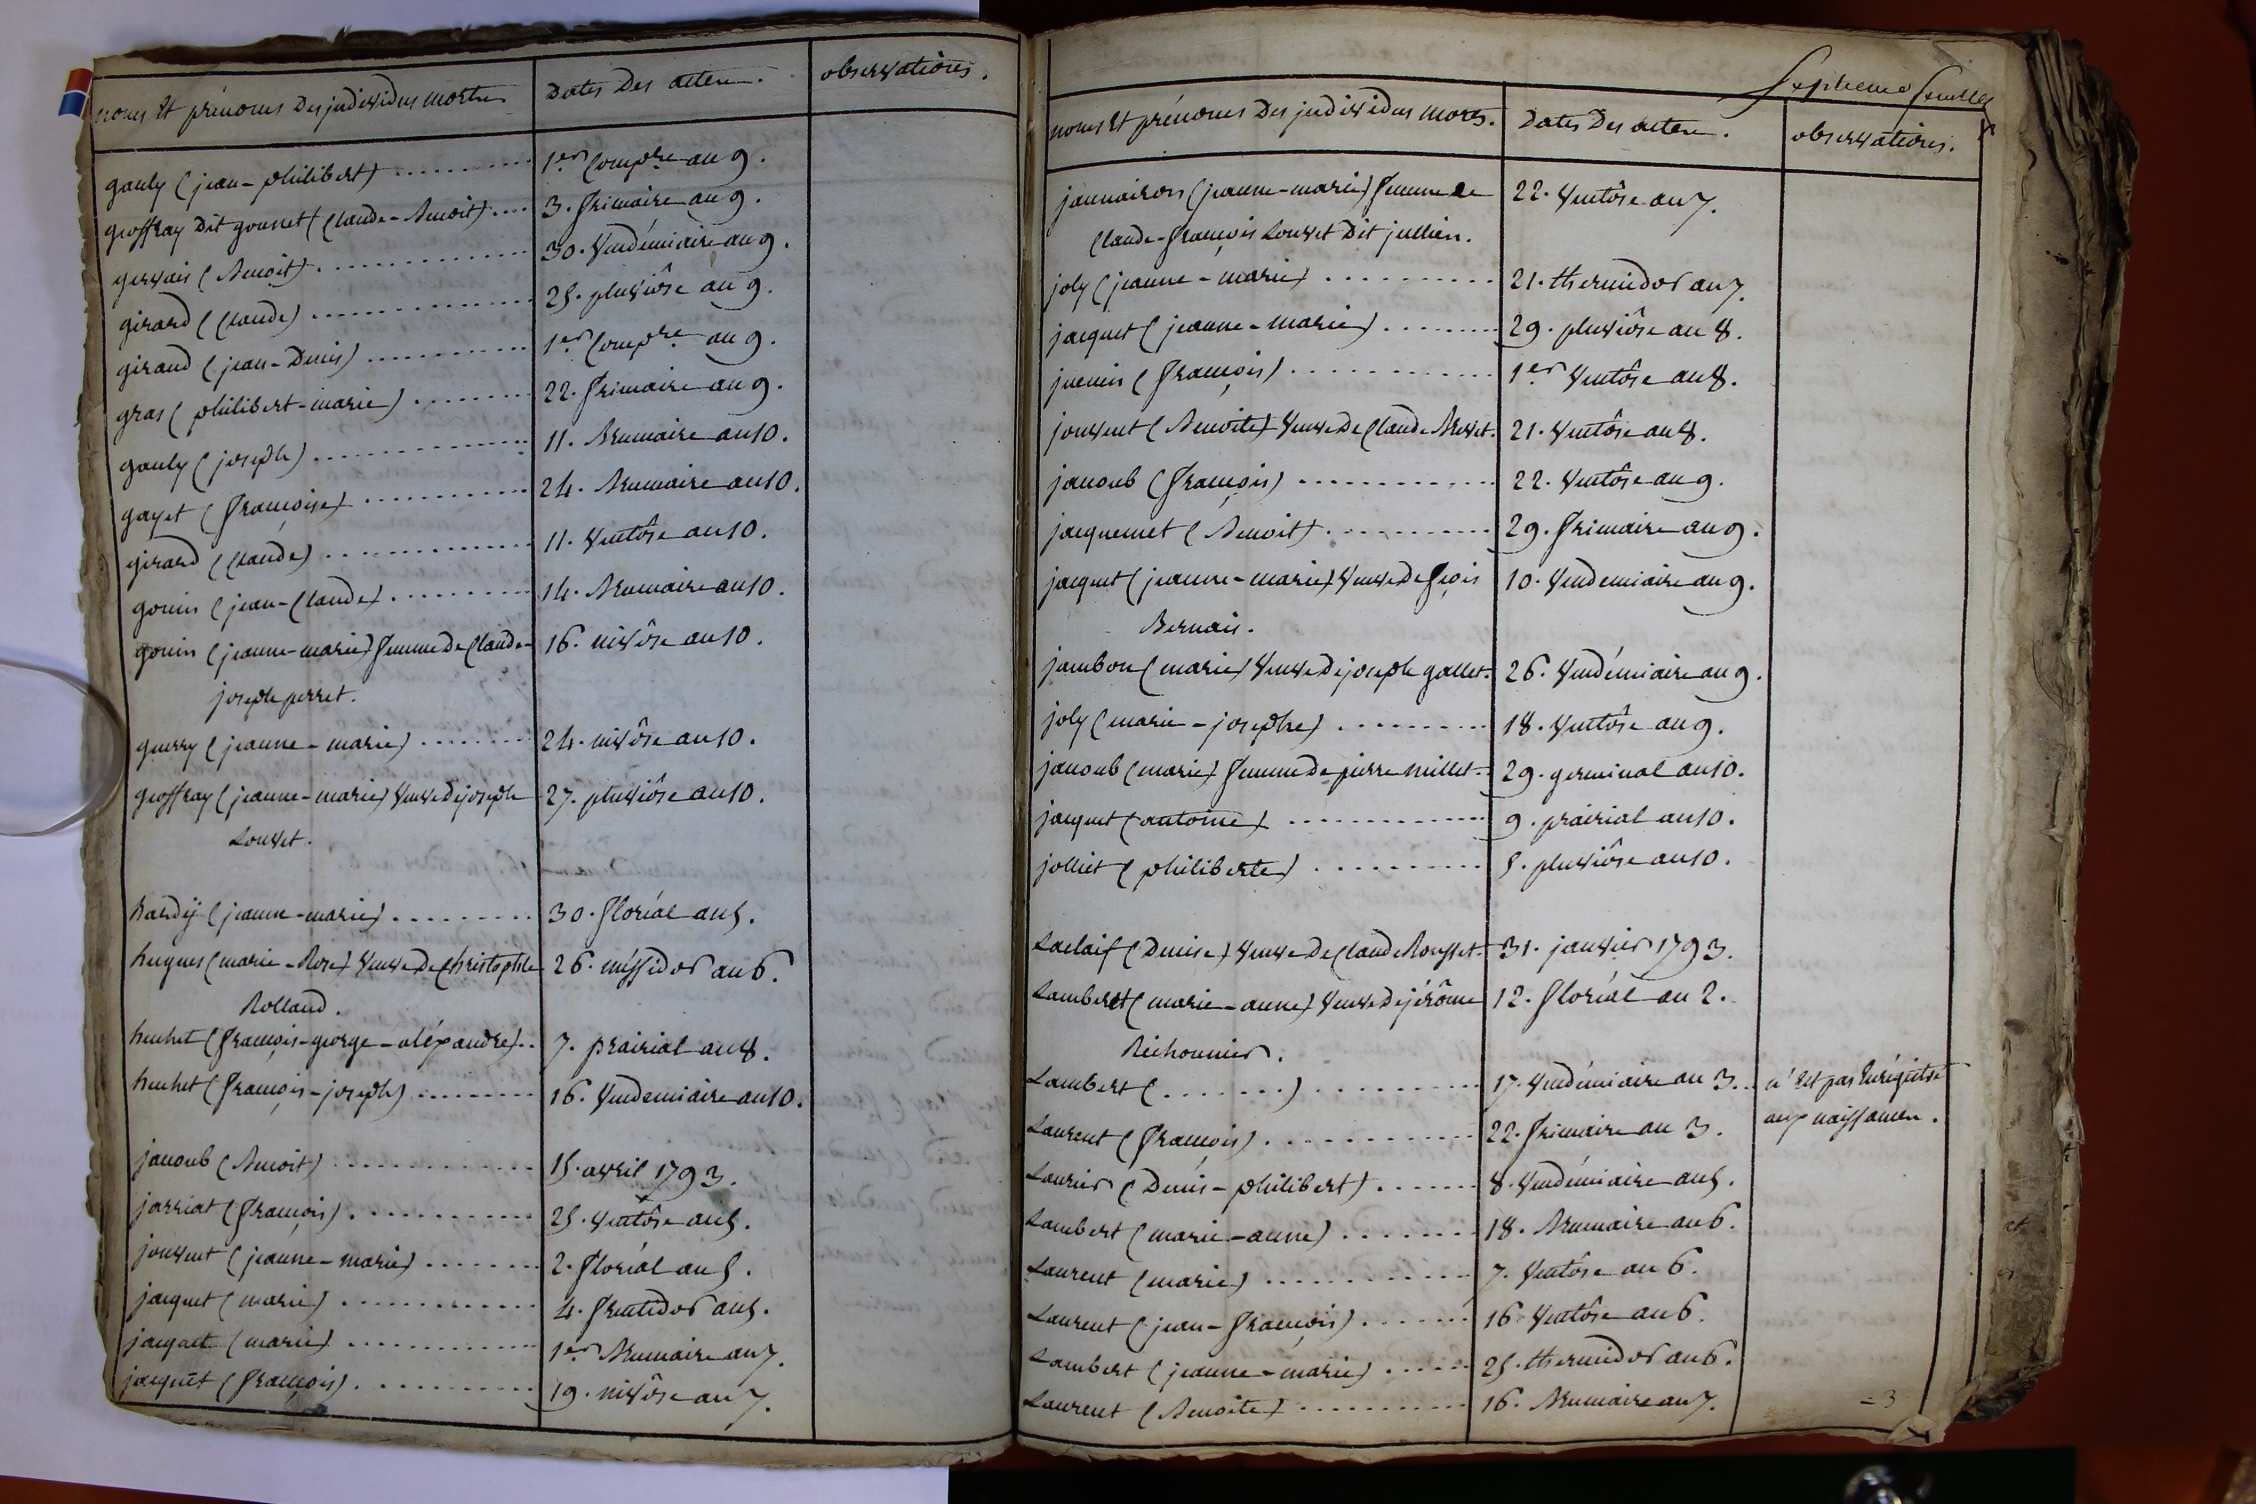 noms et prénoms des individus morts
dates des actes.
observations.
gauly (jean-philibert)
1er Compre an 9.
geoffray dit gounet (Claude-Benoit)
3. frimaire an 9.
gervais (Benoit)
30. Vendémiaire an 9.
girard (Claude)
25. pluviôse an 9.
giraud (jean-Denis)
1er Compre an 9.
gras (philibert-marie)
22. frimaire an 9.
gauly (joseph)
11. Brumaire an 10.
gayet (françoise)
24. Brumaire an 10.
girard (Claude)
11. Ventôse an 10.
gouin (jean-Claude)
14. Brumaire an 10.
gouin (jeanne-marie) femme de Claude-
16. nivôse an 10.
joseph perret.
guerry (jeanne-marie)
24. nivôse an 10.
geoffray (jeanne-marie) Veuve de joseph
27. pluviôse an 10.
Louvet.
hardÿ (jeanne-marie)
30. floréal an 5.
hugues (marie-Rose) Veuve de Christophle
26. messidor an 6.
Rolland.
huchet (françois-george-aléxandre)
7. prairial an 8.
huchet (françois-joseph)
16. Vendemiaire an 10.
janoub (Benoit)
15. avril 1793.
jarriat (françois)
25. Ventôse an 5.
jouvent (jeanne-marie)
2. floréal an 5.
jacquet (marie)
4. fructidor an 5.
jacquet (marie)
1er Brumaire an 7.
jacquet (françois)
19. nivôse an 7.
Septieme feuillet
noms et prénoms des individus morts.
dates des actes.
observations.
jannairon (jeanne-marie) femme de
22. Ventôse an 7.
Claude-françois Louvet dit jullien.
joly (jeanne-marie)
21. thermidor an 7.
jacquet (jeanne-marie)
29. pluviôse an 8.
juenin (françois)
1er Ventôse an 8.
jouvent (Benoite) Veuve de Claude Brevet.
21. Ventôse an 8.
janoub (françois)
22. Ventôse an 9.
jacquemet (Benoit)
29. frimaire an 9.
jacquet (jeanne-marie) Veuve de fçois
10. Vendemiaire an 9.
Bernais.
jambon (marie) Veuve de joseph gallet.
26. Vendémiaire an 9.
joly (marie-josephe)
18. Ventôse an 9.
janoub (marie) femme de pierre millet
29. germinal an 10.
jacquet (antoine)
9. prairial an 10.
jolliet (philiberte)
5. pluviôse an 10.
Laclaif (Denise) Veuve de Claude Rousset.
31. janvier 1793.
Lambert (marie-anne) Veuve de jérôme
12. floréal an 2.
Béchonnier.
Lambert (.......)
17. Vendémiaire an 3.
n'est pas Enrégistré
aux naissances.
Laurent (françois)
22. frimaire an 3.
Laurier (Denis-philibert)
8. Vendémiaire an 5.
Lambert (marie-anne)
18. Brumaire an 6.
Laurent (marie)
7. Ventôse an 6.
Laurent (jean-françois)
16. Ventôse an 6.
Lambert (jeanne-marie)
25. thermidor an 6.
Laurent (Benoite)
16. Brumaire an 7.
=3